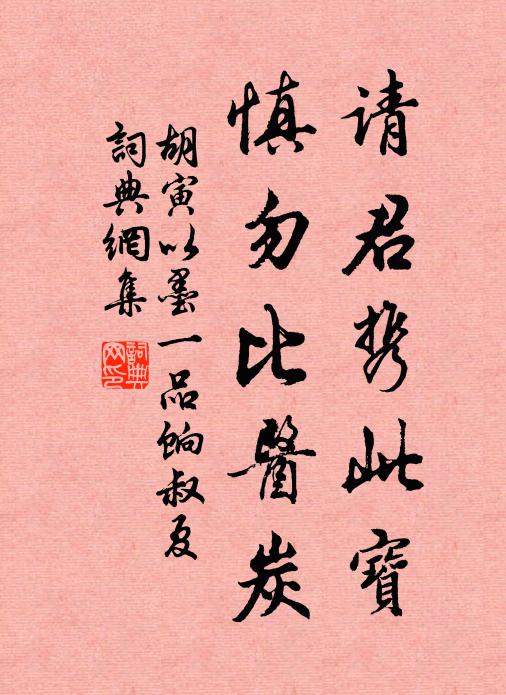 请君携此寳
慎勿比醫炭
胡寅以墨一品餉叔夏
詞典網集
詞典網印